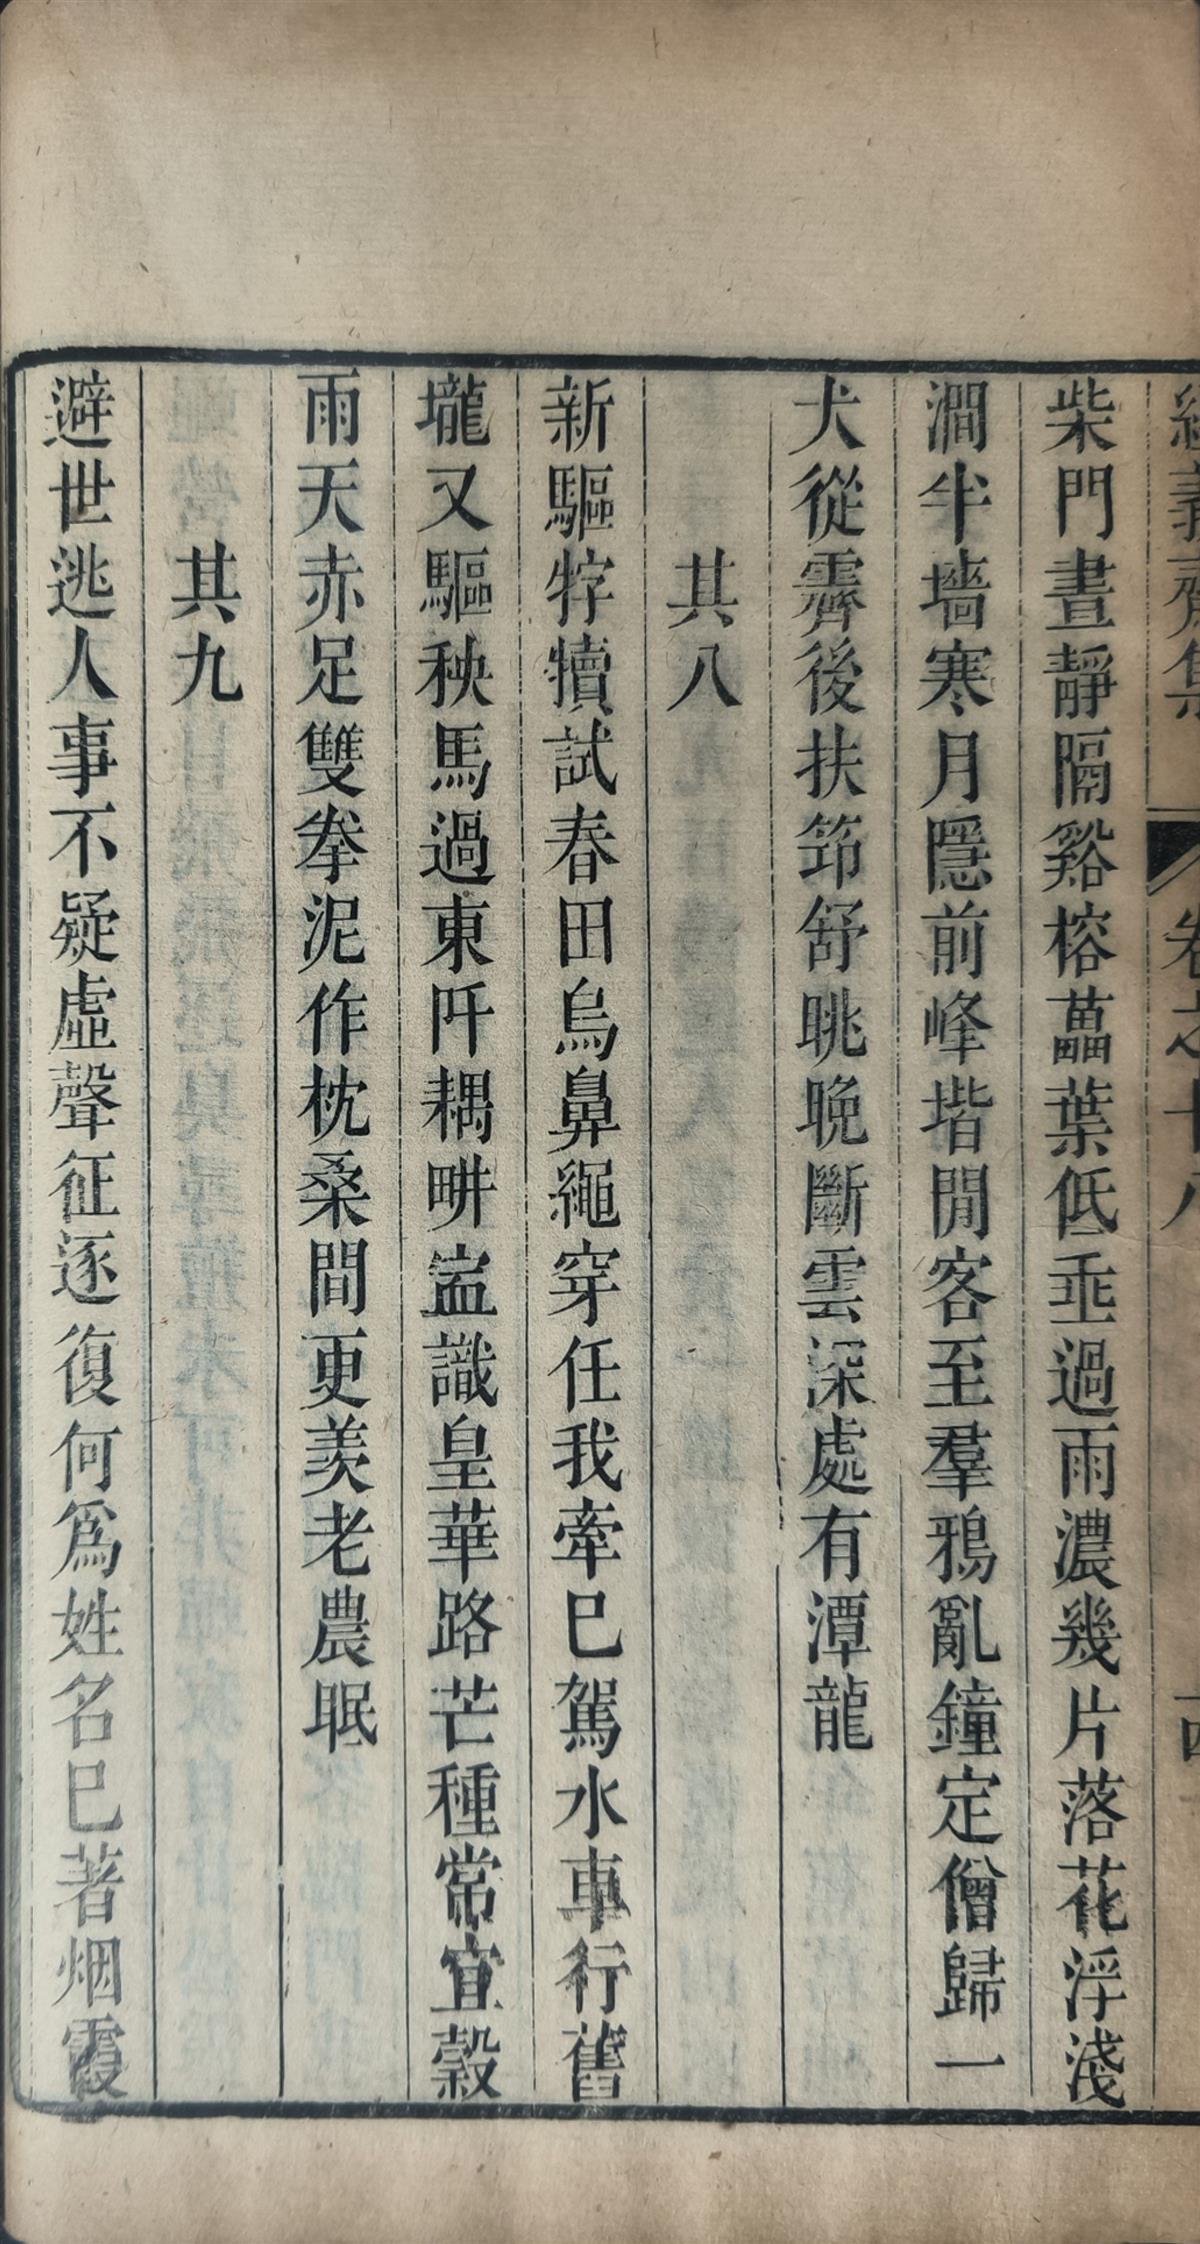 集 卷之十八
柴門晝靜隔谿榕藟葉低垂過雨濃幾片落花浮淺
澗半墻寒月隱前峰堦閒客至羣鴉亂鐘定僧歸一
犬從霽後扶筇舒眺晚斷雲深處有潭龍
其八
新驅牸犢試春田烏鼻繩穿任我牽巳駕水車行舊
壠又驅秧馬過東阡耦畊豈識皇華路芒種常宜穀
雨天赤足雙拳泥作枕桑間更羨老農眠
其九
避世逃人事不疑虛聲征逐復何爲姓名巳著烟霞